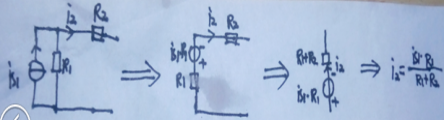 i₂ R₂
iS1 R₁
⇒
i₂ R₂
iS1·R₁ -
+
R₁
⇒
R₁+R₂ i₂
-
iS1·R₁ +
⇒ i₂ = iS1·R₁ / R₁+R₂